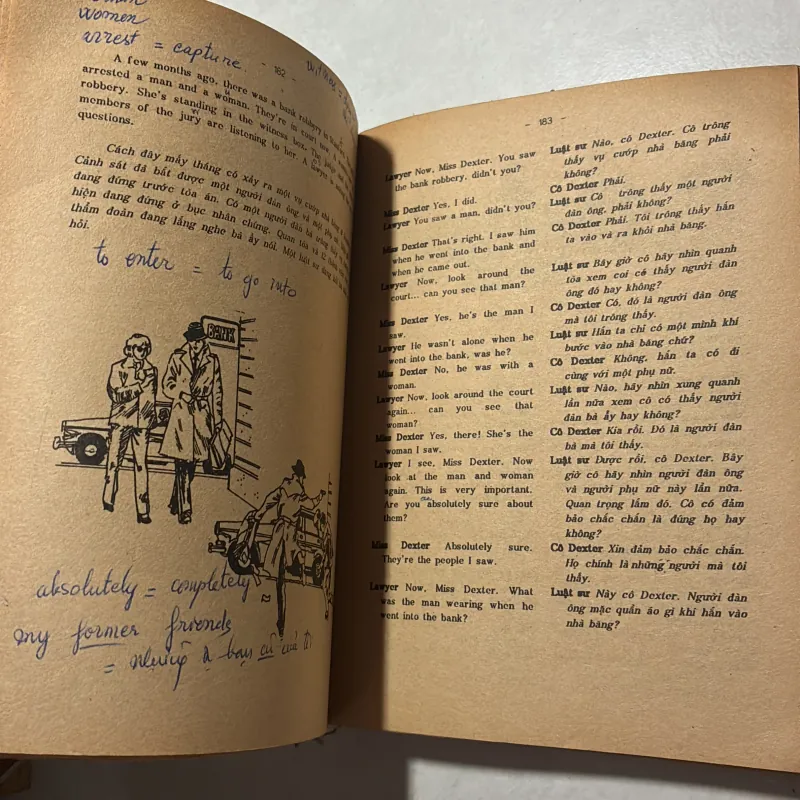 women
arrest = capture.
- 182 -
A few months ago, there was a bank robbery in
arrested a man and a woman. They're in court now. A
robbery. She's standing in the witness box. The
members of the jury are listening to her. A lawyer is
questions.
Cách đây mấy tháng có xảy ra một vụ cướp nhà
Cảnh sát đã bắt được một người đàn ông và một phụ
đang đứng trước tòa án. Có một người đàn bà
hiện đang đứng ở bục nhân chứng. Quan tòa và 12
thẩm đoàn đang lắng nghe bà ấy nói. Một luật sư đang
hỏi.
to enter = to go into
BANK
absolutely = completely
my former friends
= những bạn cũ của tôi
- 183 -
Lawyer Now, Miss Dexter. You saw
the bank robbery, didn't you?
Miss Dexter Yes, I did.
Lawyer You saw a man, didn't you?
Miss Dexter That's right. I saw him
when he went into the bank and
when he came out.
Lawyer Now, look around the
court... can you see that man?
Miss Dexter Yes, he's the man I
saw.
Lawyer He wasn't alone when he
went into the bank, was he?
Miss Dexter No, he was with a
woman.
Lawyer Now, look around the court
again... can you see that
woman?
Miss Dexter Yes, there! She's the
woman I saw.
Lawyer I see, Miss Dexter. Now
look at the man and woman
again. This is very important.
Are you absolutely sure about
them?
Miss Dexter Absolutely sure.
They're the people I saw.
Lawyer Now, Miss Dexter. What
was the man wearing when he
went into the bank?
Luật sư Nào, cô Dexter. Cô trông
thấy vụ cướp nhà băng phải
không?
Cô Dexter Phải.
Luật sư Cô trông thấy một người
đàn ông, phải không?
Cô Dexter Phải. Tôi trông thấy hắn
ta vào và ra khỏi nhà băng.
Luật sư Bây giờ cô hãy nhìn quanh
tòa xem coi có thấy người đàn
ông đó hay không?
Cô Dexter Có, đó là người đàn ông
mà tôi trông thấy.
Luật sư Hắn ta chỉ có một mình khi
bước vào nhà băng chứ?
Cô Dexter Không, hắn ta có đi
cùng với một phụ nữ.
Luật sư Nào, hãy nhìn xung quanh
lần nữa xem cô có thấy người
đàn bà ấy hay không?
Cô Dexter Kia rồi. Đó là người đàn
bà mà tôi thấy.
Luật sư Được rồi, cô Dexter. Bây
giờ cô hãy nhìn người đàn ông
và người phụ nữ này lần nữa.
Quan trọng lắm đó. Cô có đảm
bảo chắc chắn là đúng họ hay
không?
Cô Dexter Xin đảm bảo chắc chắn.
Họ chính là những người mà tôi
thấy.
Luật sư Này cô Dexter. Người đàn
ông mặc quần áo gì khi hắn vào
nhà băng?